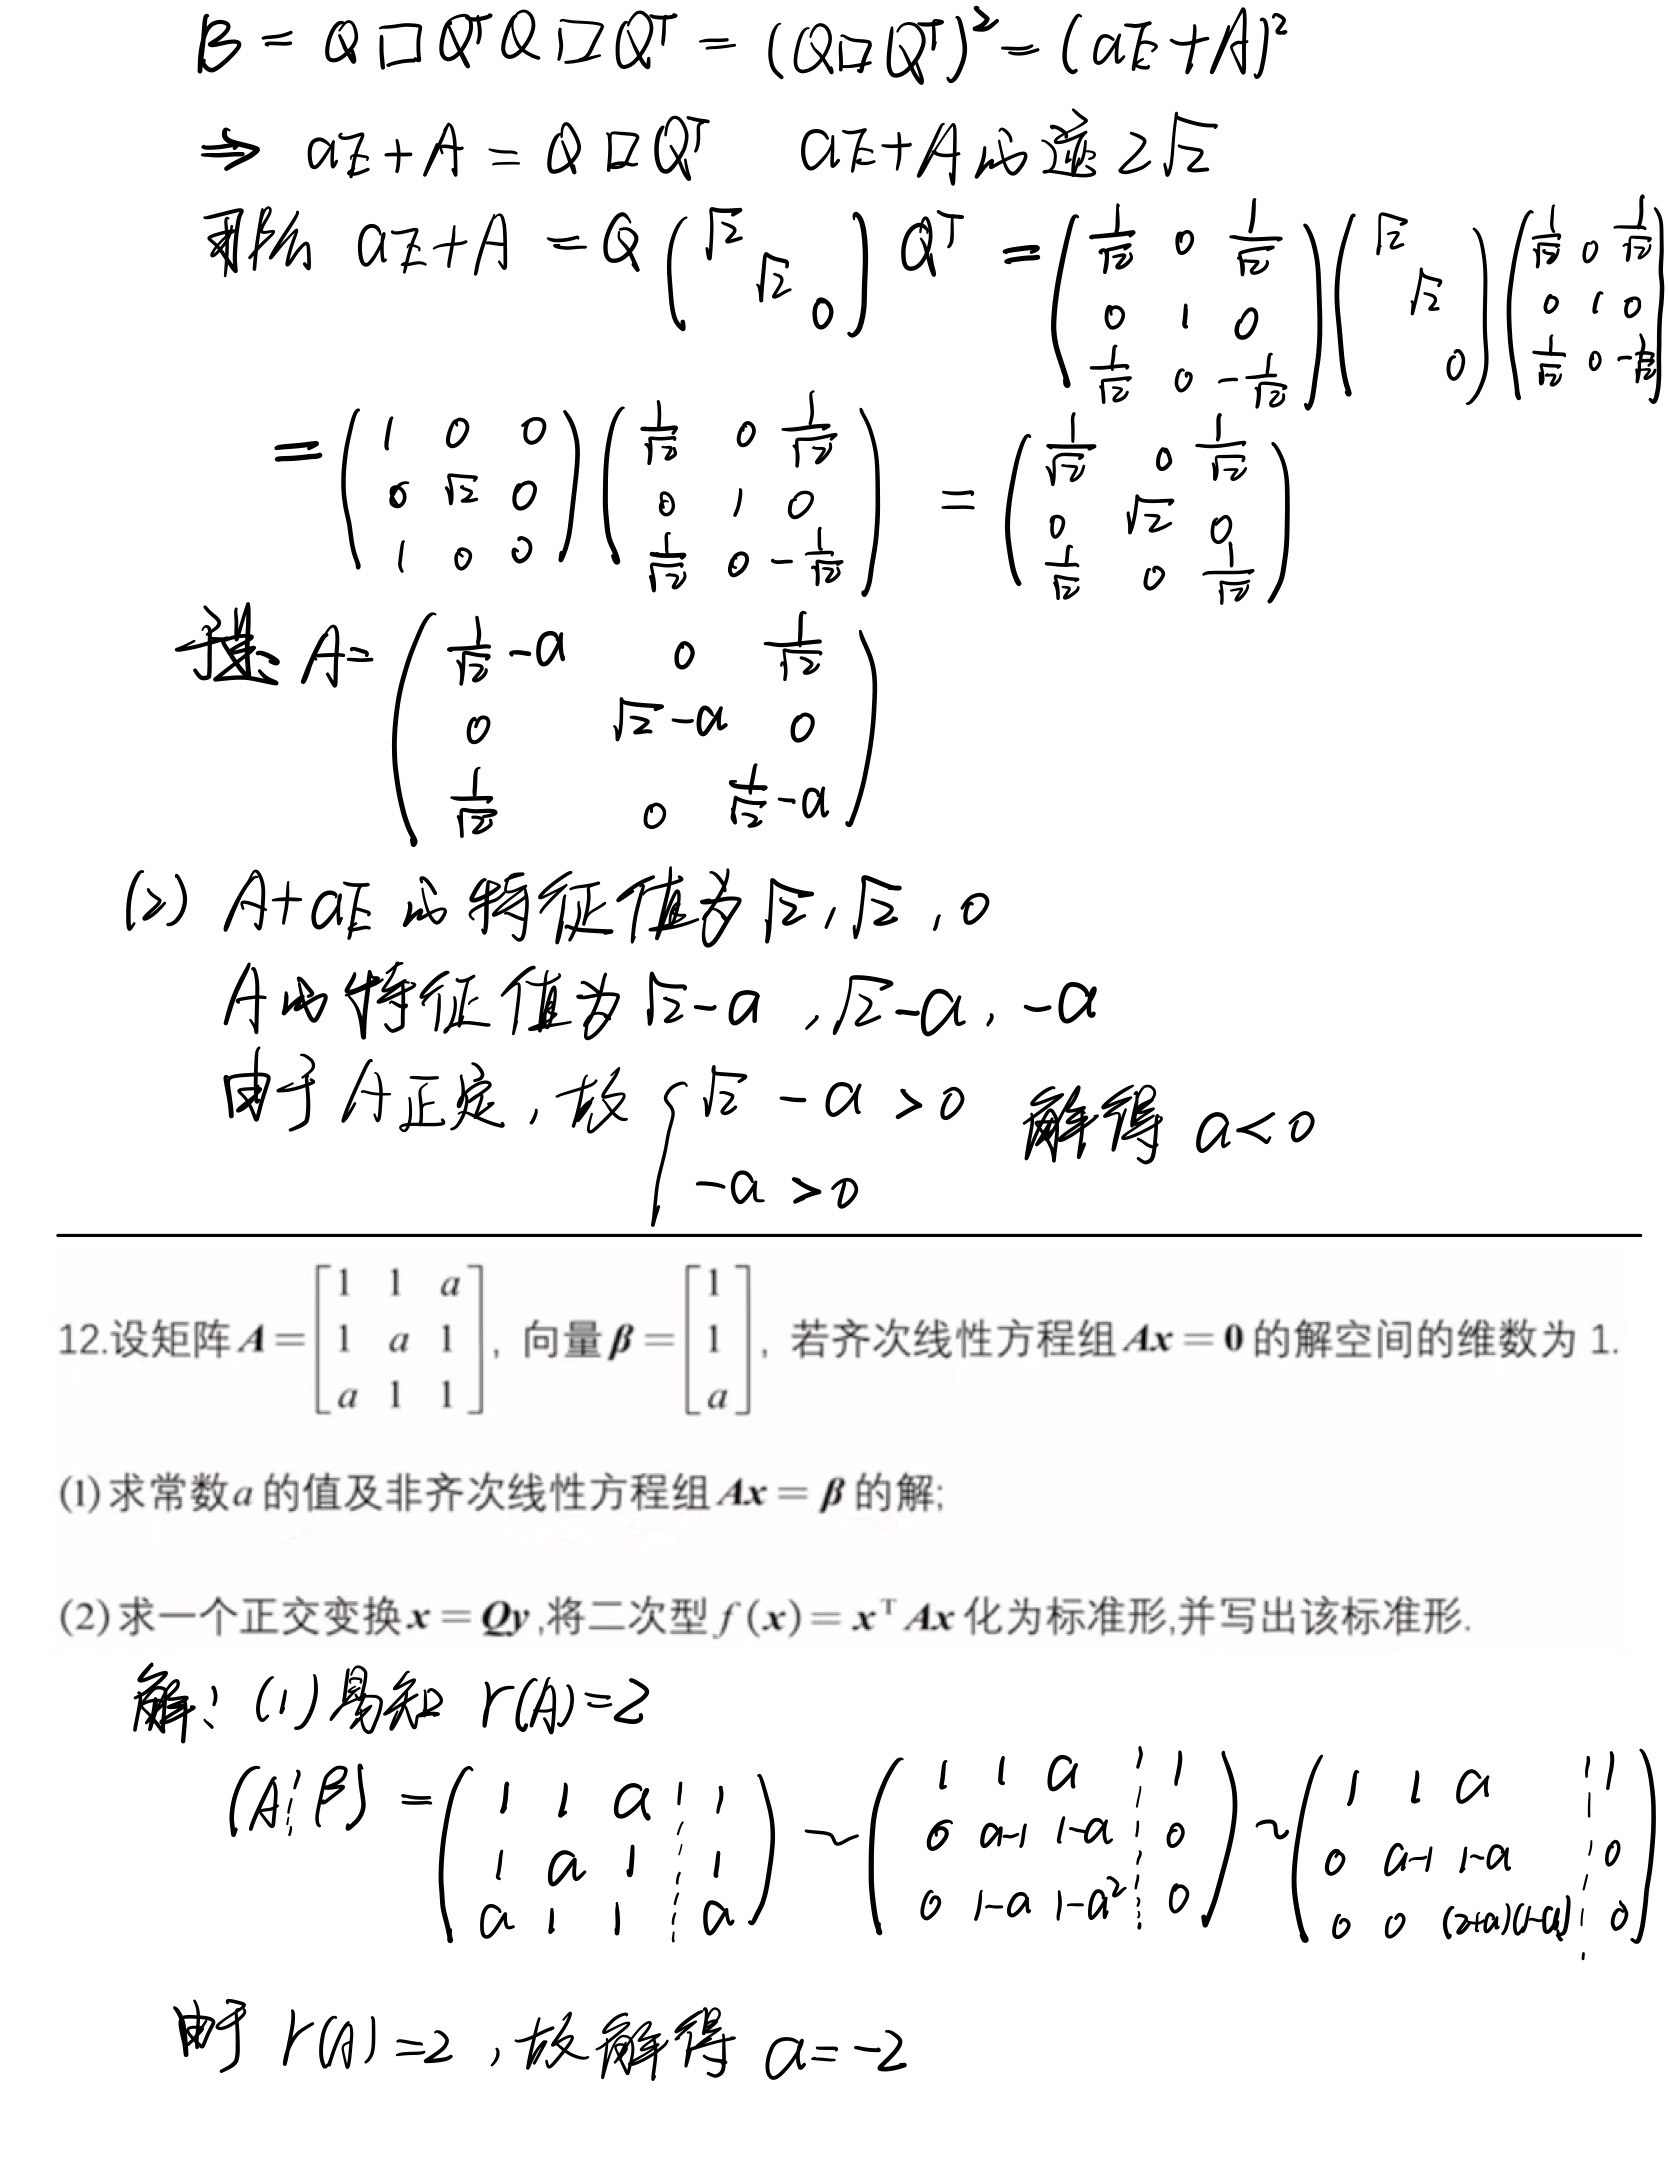 B = Q□QᵀQ□Qᵀ = (Q□Qᵀ)² = (aE+A)²
⇒ aE+A = Q□Qᵀ aE+A的迹 2√2
aE+A = Q(√2 √2 0)Qᵀ = (1/√2 0 1/√2; 0 1 0; 1/√2 0 -1/√2)(√2 √2 0)(1/√2 0 1/√2; 0 1 0; 1/√2 0 -1/√2)
= (1 0 0; 0 √2 0; 1 0 0)(1/√2 0 1/√2; 0 1 0; 1/√2 0 -1/√2) = (1/√2 0 1/√2; 0 √2 0; 1/√2 0 1/√2)
于是 A = (1/√2-a 0 1/√2; 0 √2-a 0; 1/√2 0 1/√2-a)
(2) A+aE的特征值为√2, √2, 0
A的特征值为√2-a, √2-a, -a
由于A正定, 故 { √2-a>0 解得 a<0
-a>0
12.设矩阵 A = [1 1 a; 1 a 1; a 1 1], 向量 β = [1; 1; a], 若齐次线性方程组 Ax = 0 的解空间的维数为 1.
(1) 求常数 a 的值及非齐次线性方程组 Ax = β 的解;
(2) 求一个正交变换 x = Qy ,将二次型 f (x) = xᵀAx 化为标准形,并写出该标准形.
解: (1) 易知 r(A)=2
(A¦β) = (1 1 a ¦ 1; 1 a 1 ¦ 1; a 1 1 ¦ a) ~ (1 1 a ¦ 1; 0 a-1 1-a ¦ 0; 0 1-a 1-a² ¦ 0) ~ (1 1 a ¦ 1; 0 a-1 1-a ¦ 0; 0 0 (2+a)(1-a) ¦ 0)
由于 r(A)=2, 故解得 a=-2